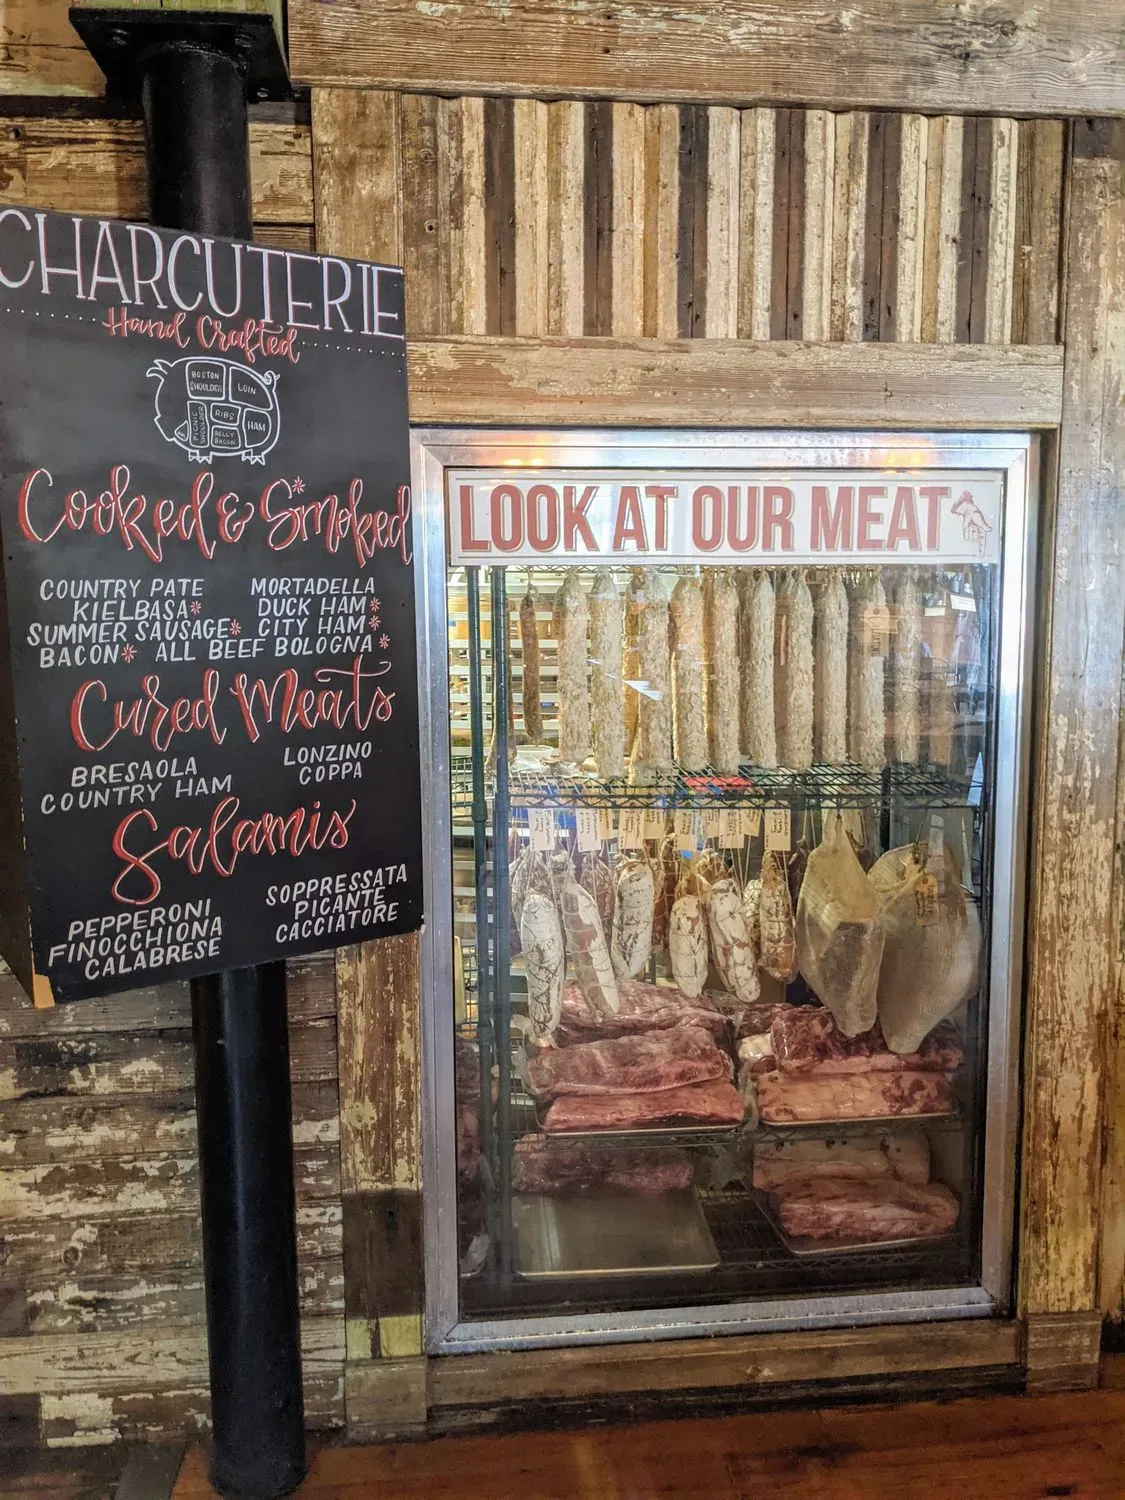 CHARCUTERIE
Hand Crafted
BOSTON
SHOULDER
LOIN
PICNIC
SHOULDER
RIBS
HAM
BELLY
BACON
Cooked & Smoked
COUNTRY PATE
KIELBASA*
SUMMER SAUSAGE*
BACON*
MORTADELLA
DUCK HAM*
CITY HAM*
ALL BEEF BOLOGNA*
Cured Meats
BRESAOLA
COUNTRY HAM
LONZINO
COPPA
Salamis
PEPPERONI
FINOCCHIONA
CALABRESE
SOPPRESSATA
PICANTE
CACCIATORE
LOOK AT OUR MEAT